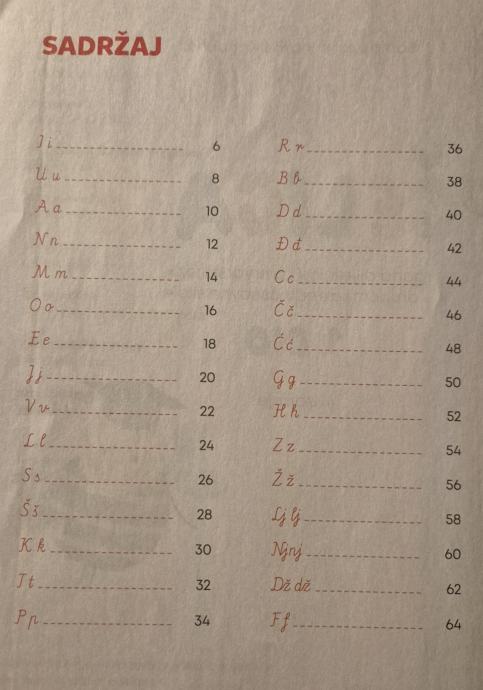 SADRŽAJ
I i 6
U u 8
A a 10
N n 12
M m 14
O o 16
E e 18
J j 20
V v 22
L l 24
S s 26
Š š 28
K k 30
T t 32
P p 34
R r 36
B b 38
D d 40
Đ đ 42
C c 44
Č č 46
Ć ć 48
G g 50
H h 52
Z z 54
Ž ž 56
Lj lj 58
Nj nj 60
Dž dž 62
F f 64